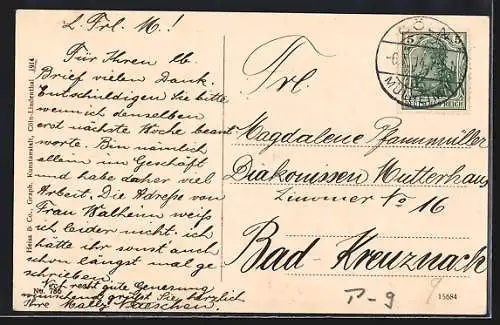 L. Frl. M.!
Für Ihren lb.
Brief vielen Dank.
Entschuldigen Sie bitte
wenn ich denselben
erst nächste Woche beant
worte. Bin nämlich
allein im Geschäft
und habe daher viel
Arbeit. Die Adresse von
Frau Walheim weiß
ich leider nicht. ich
hätte ihr sonst auch
schon längst mal ge
schrieben.
Noch recht gute Genesung
wünschend grüßt Sie herzlich
Ihre Mally
No. 786
Heiss & Co., Graph. Kunstanstalt, Cöln-Lindenthal 1914
CÖLN
MÜLHEIM
5 5
DEUTSCHES REICH
Frl.
Magdalene Pfannmüller
Diakonissen Mutterhaus
Zimmer No 16
Bad-Kreuznach
P-9
9
15684